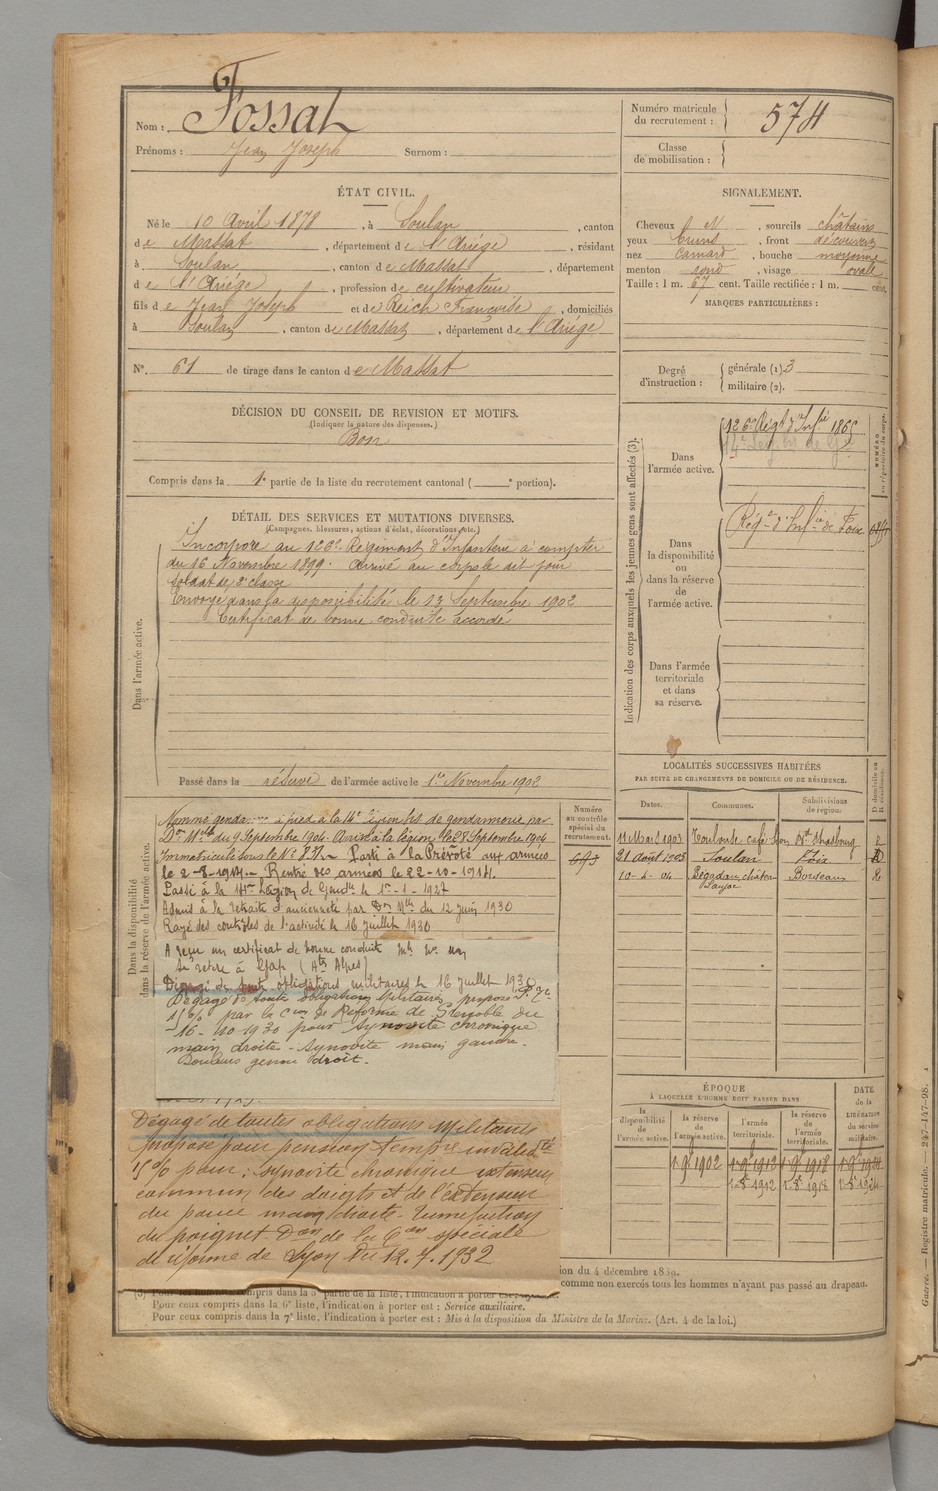 Nom : Fossat
Prénoms : Jean Joseph Surnom :
Numéro matricule du recrutement : 574
Classe de mobilisation :
ÉTAT CIVIL.
Né le 10 Avril 1878, à Soulan, canton
de Massat, département de l'Ariége, résidant
à Soulan, canton de Massat, département
de l'Ariége, profession de cultivateur
fils de Jean Joseph et de Reich Françoise, domiciliés
à Soulan, canton de Massat, département de l'Ariége
N°. 61 de tirage dans le canton de Massat
SIGNALEMENT.
Cheveux N, sourcils châtains
yeux bruns, front découvert
nez camard, bouche moyenne
menton rond, visage ovale
Taille : 1 m. 67 cent. Taille rectifiée : 1 m. cent.
MARQUES PARTICULIÈRES :
Degré d'instruction : générale (1) 3
militaire (2).
DÉCISION DU CONSEIL DE REVISION ET MOTIFS.
(Indiquer la nature des dispenses.)
Bon
Compris dans la 1e partie de la liste du recrutement cantonal ( e portion).
DÉTAIL DES SERVICES ET MUTATIONS DIVERSES.
(Campagnes, blessures, actions d'éclat, décorations, etc.)
Dans l'armée active.
Incorporé au 126e Régiment d'Infanterie à compter
du 16 Novembre 1899. Arrivé au corps le dit jour
Soldat de 2e classe
Envoyé dans la disponibilité le 23 Septembre 1902
Certificat de bonne conduite accordé
Passé dans la réserve de l'armée active le 1er Novembre 1902
Indication des corps auxquels les jeunes gens sont affectés (3).
NUMÉRO
Dans l'armée active.
126e Régt d'Infie 1865
Dans la disponibilité ou dans la réserve de l'armée active.
Régt d'Infie de Foix
Dans l'armée territoriale et dans sa réserve.
LOCALITÉS SUCCESSIVES HABITÉES
PAR SUITE DE CHANGEMENTS DE DOMICILE OU DE RÉSIDENCE.
Dates. Communes. Subdivisions de région.
11 Mai 1903 Toulouse café Bd Strasbourg R
31 Août 1903 Soulan Foix D
10-4-04 Bordeaux R
Dans la disponibilité
dans la réserve de l'armée active.
Numéro au contrôle spécial du recrutement.
693
Nommé gendarme à pied à la 14e Légion bis de gendarmerie par
Don Mlle du 9 Septembre 1904. Arrivé à la légion le 28 Septembre 1904
Immatriculé sous le N° Parti à la Prévôté aux armées
le 2-8-1914. Rentré des armées le 22-10-1914.
Passé à la 14me Légion de Gendie le 1er-1-1927
Admis à la retraite d'ancienneté par Don Mlle du 12 juin 1930
Rayé des contrôles de l'activité le 16 juillet 1930
A reçu un certificat de bonne conduite
Se retire à Gap (Htes Alpes)
Dégagé de toutes obligations militaires le 16 juillet 1930
Dégagé de toutes obligations Militaires, proposé
15% par la Con de Réforme de Grenoble du
16-10-1930 pour synovite chronique
main droite - Synovite main gauche.
Douleurs genou droit.
Dégagé de toutes obligations Militaires
proposé pour pension tempre invalidité
15% pour : synovite chronique extenseur
commun des doigts et de l'extenseur
du pouce main droite - Tuméfaction
du poignet Don de la Con spéciale
de réforme de Lyon du 12.7.1932
ÉPOQUE
À LAQUELLE L'HOMME DOIT PASSER DANS
la disponibilité de l'armée active.
la réserve de l'armée active.
l'armée territoriale.
la réserve de l'armée territoriale.
DATE de la LIBÉRATION du service militaire.
1-9bre 1902 1-9bre 1912 1-9bre 1918 1-9bre 1924
1-8bre 1912 1-8bre 1918 1-8bre 1924
ion du 4 décembre 1889.
comme non exercés tous les hommes n'ayant pas passé au drapeau.
Pour ceux compris dans la 6e liste, l'indication à porter est : Service auxiliaire.
Pour ceux compris dans la 7e liste, l'indication à porter est : Mis à la disposition du Ministre de la Marine. (Art. 4 de la loi.)
Guerre. — Registre matricule. — 247-147-98.